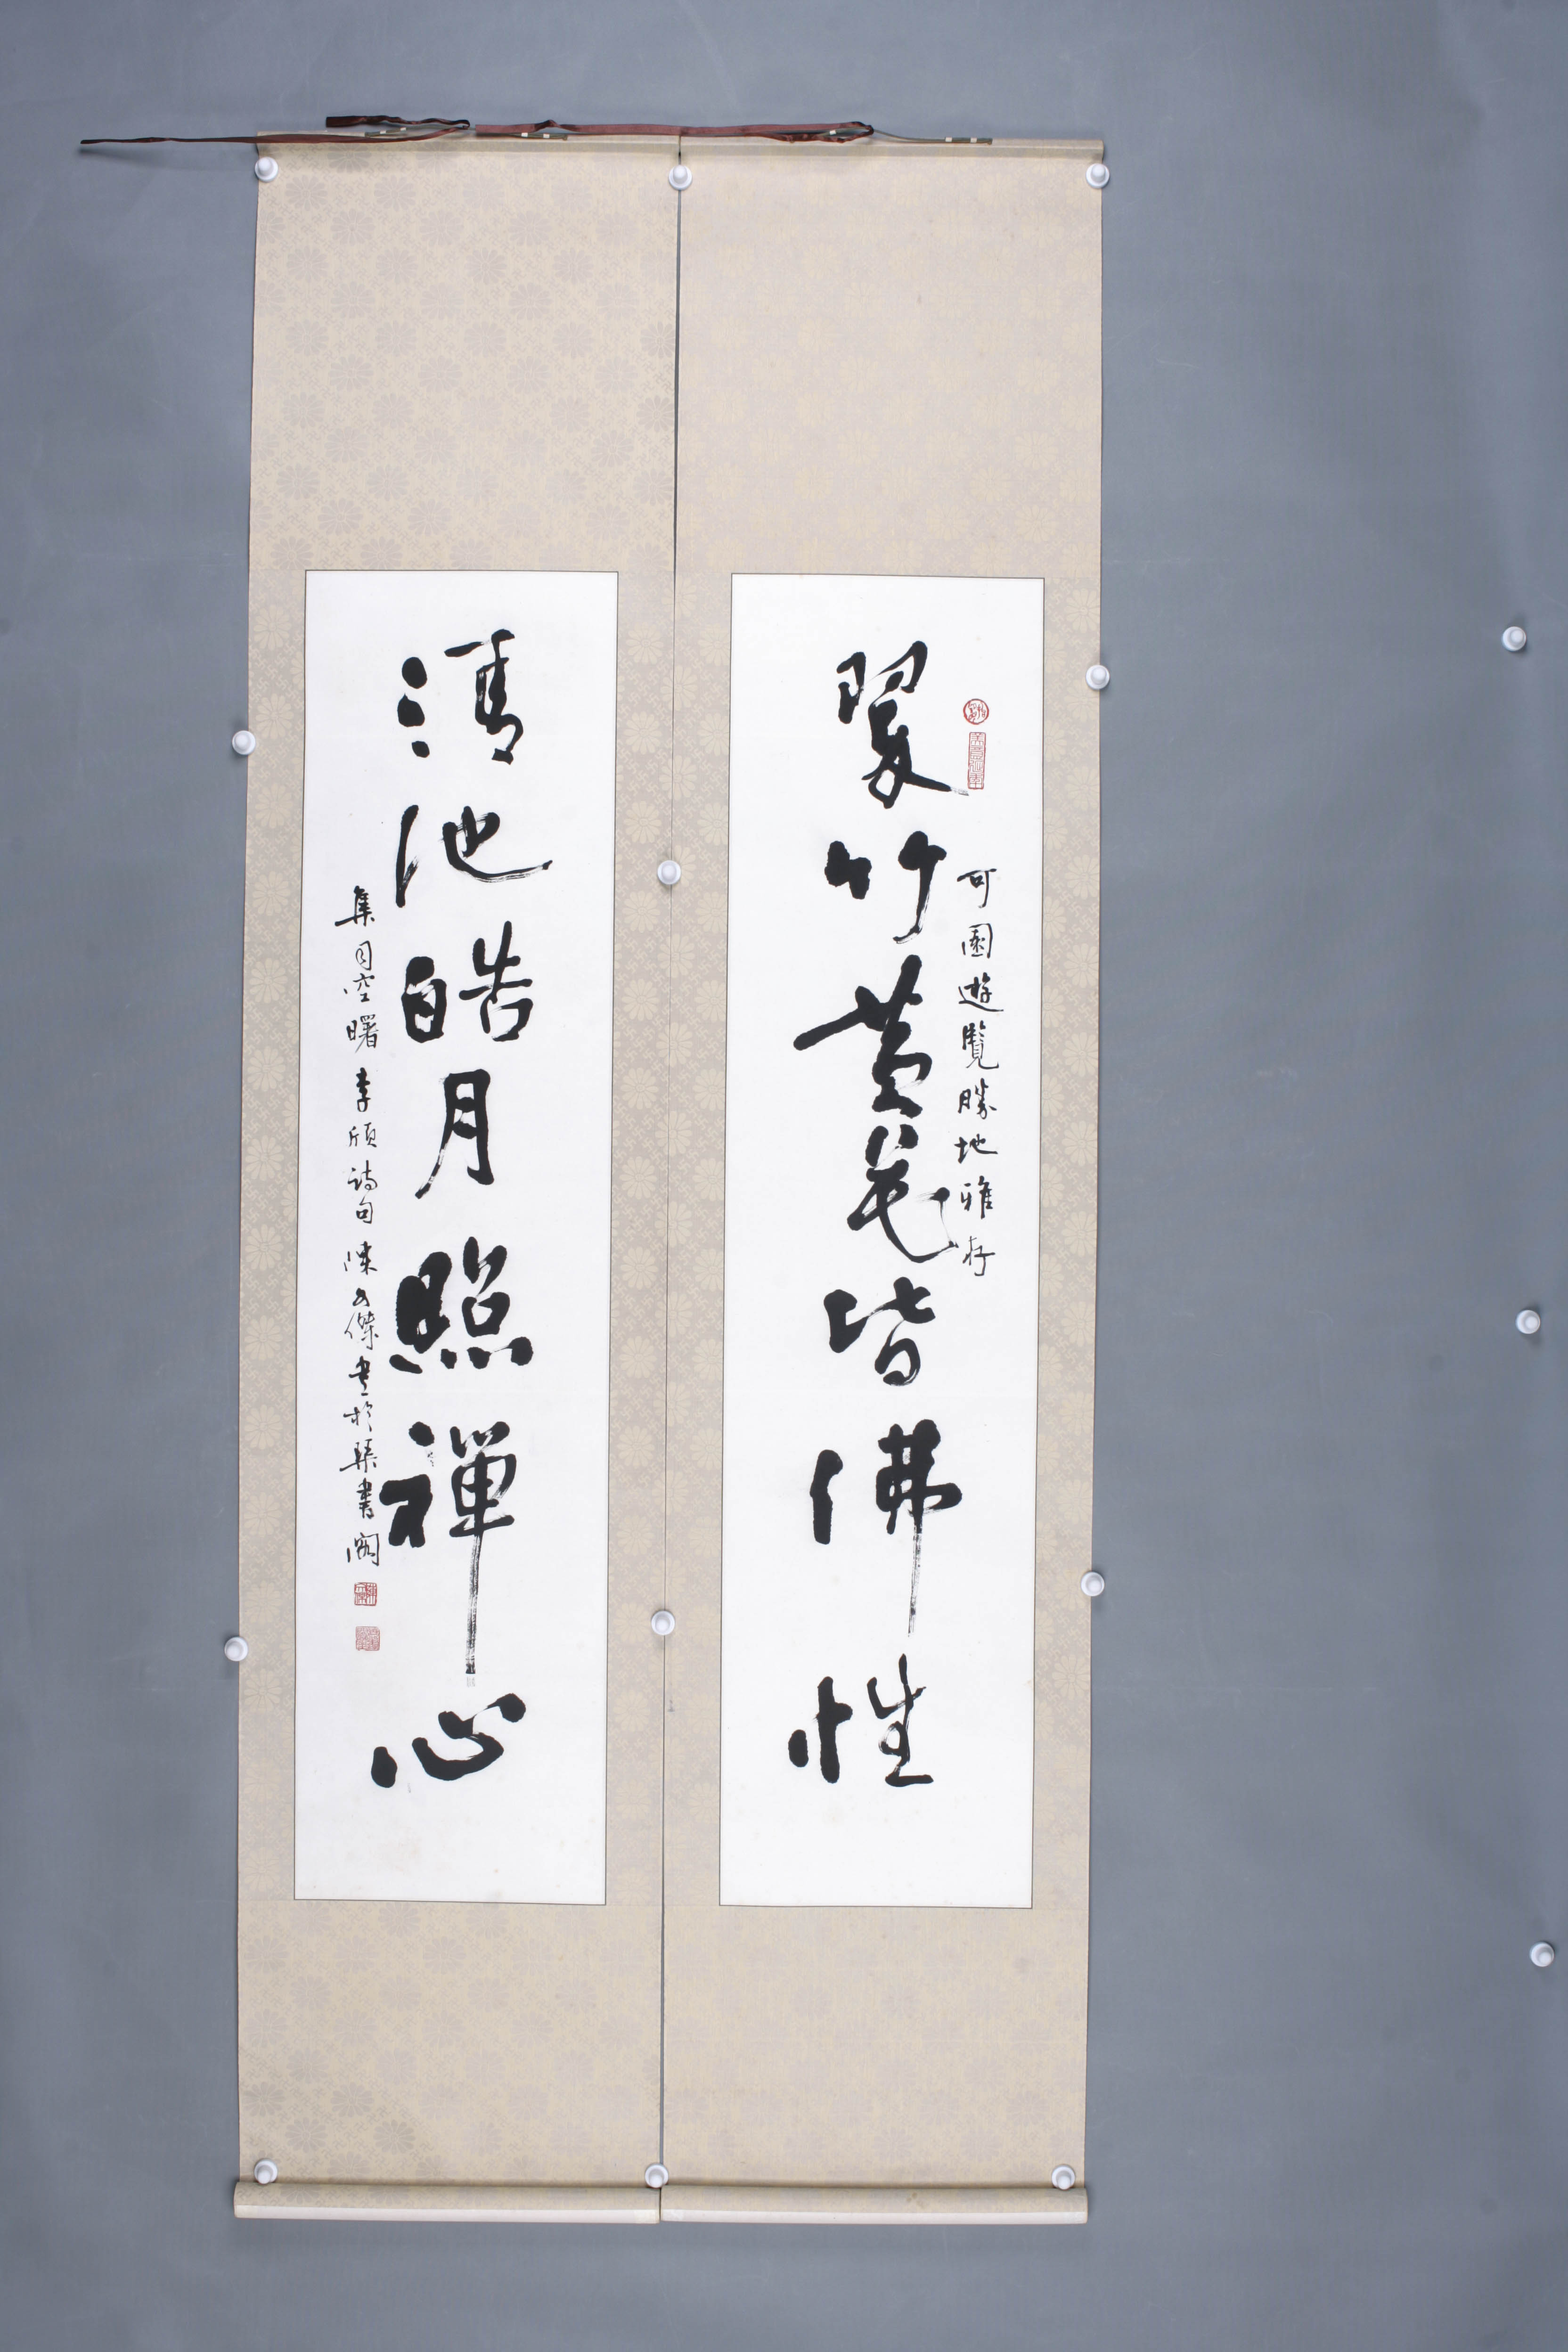 可園遊覽勝地雅存
翠竹黄花皆佛性
清池皓月照禪心
集司空曙李頎詩句陳文傑書於琹書閣